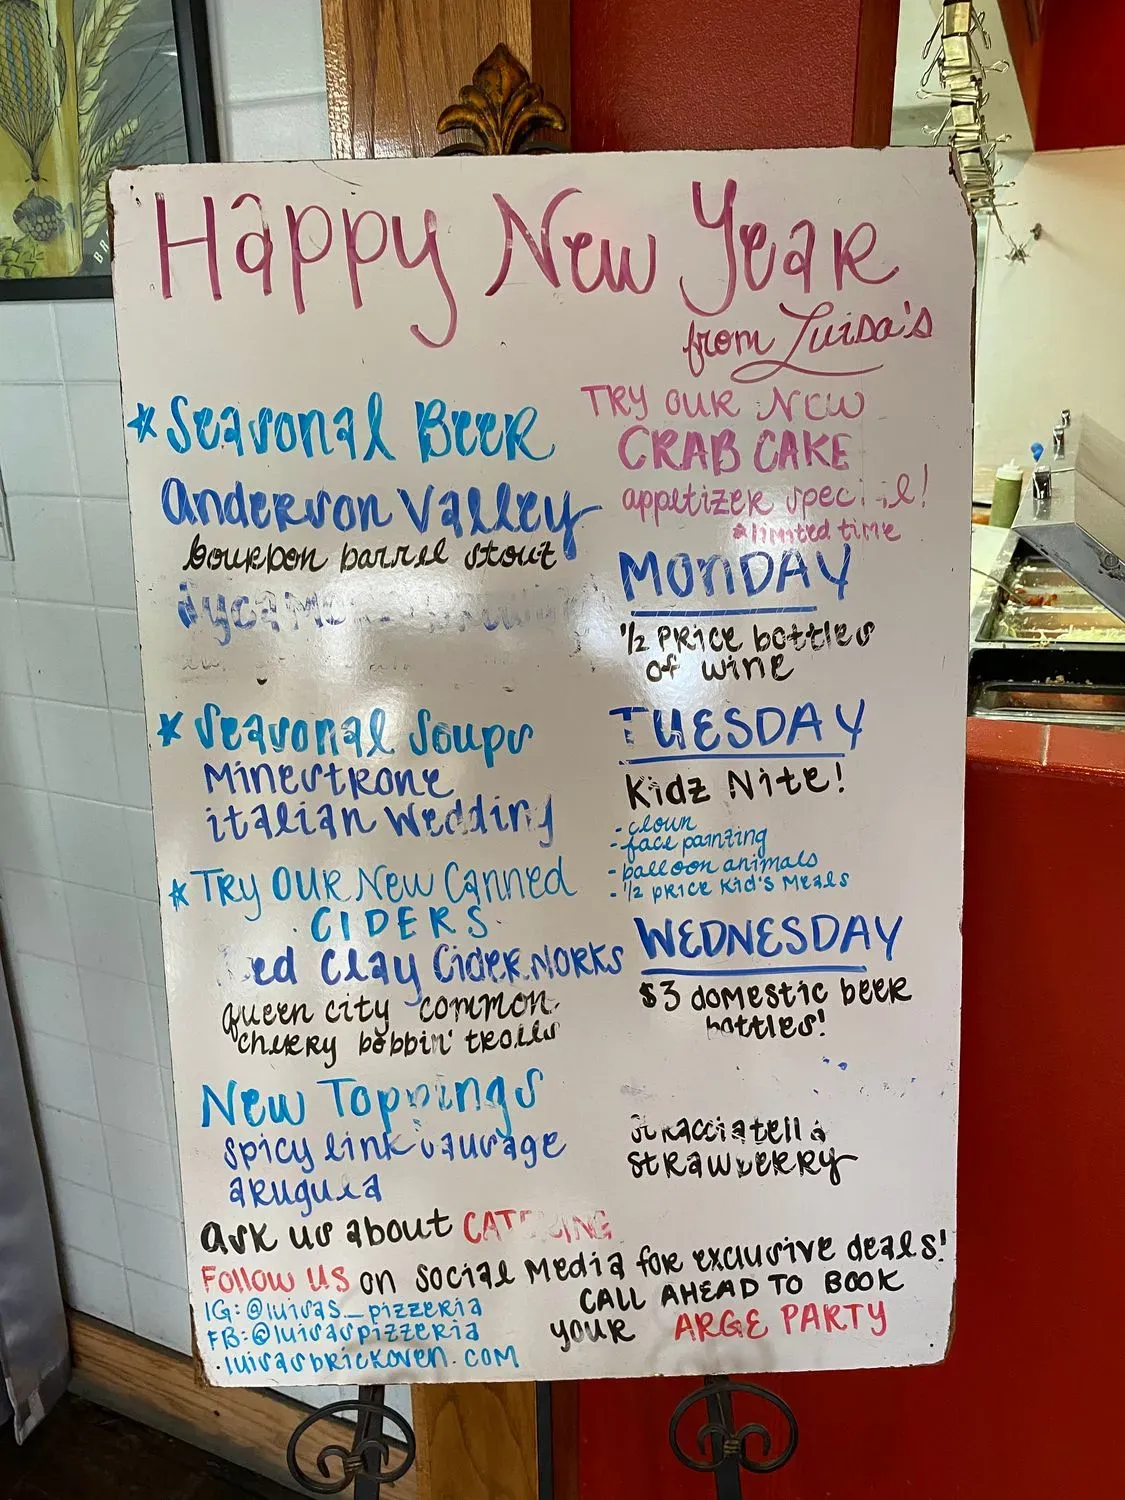 Happy New Year
from Luisa's
* Seasonal Beer
Anderson Valley
bourbon barrel stout
* Seasonal Soups
Minestrone
italian Wedding
* TRY OUR New Canned
CIDERS
ed Clay CiderWORKS
queen city common
cherry bobbin' trolls
New Toppings
spicy link sausage
arugula
TRY OUR New
CRAB CAKE
appetizer special!
*limited time
MONDAY
1/2 PRice bottles
of wine
TUESDAY
Kidz Nite!
- clown
- face painting
- balloon animals
- 1/2 price Kid's Meals
WEDNESDAY
$3 domestic beer
bottles!
stracciatella
strawberry
ask us about CATERING
Follow US on social Media for exclusive deals!
IG: @luisas_pizzeria
FB: @luisaspizzeria
·luisasbrickoven.com
CALL AHEAD TO BOOK
your ARGE PARTY